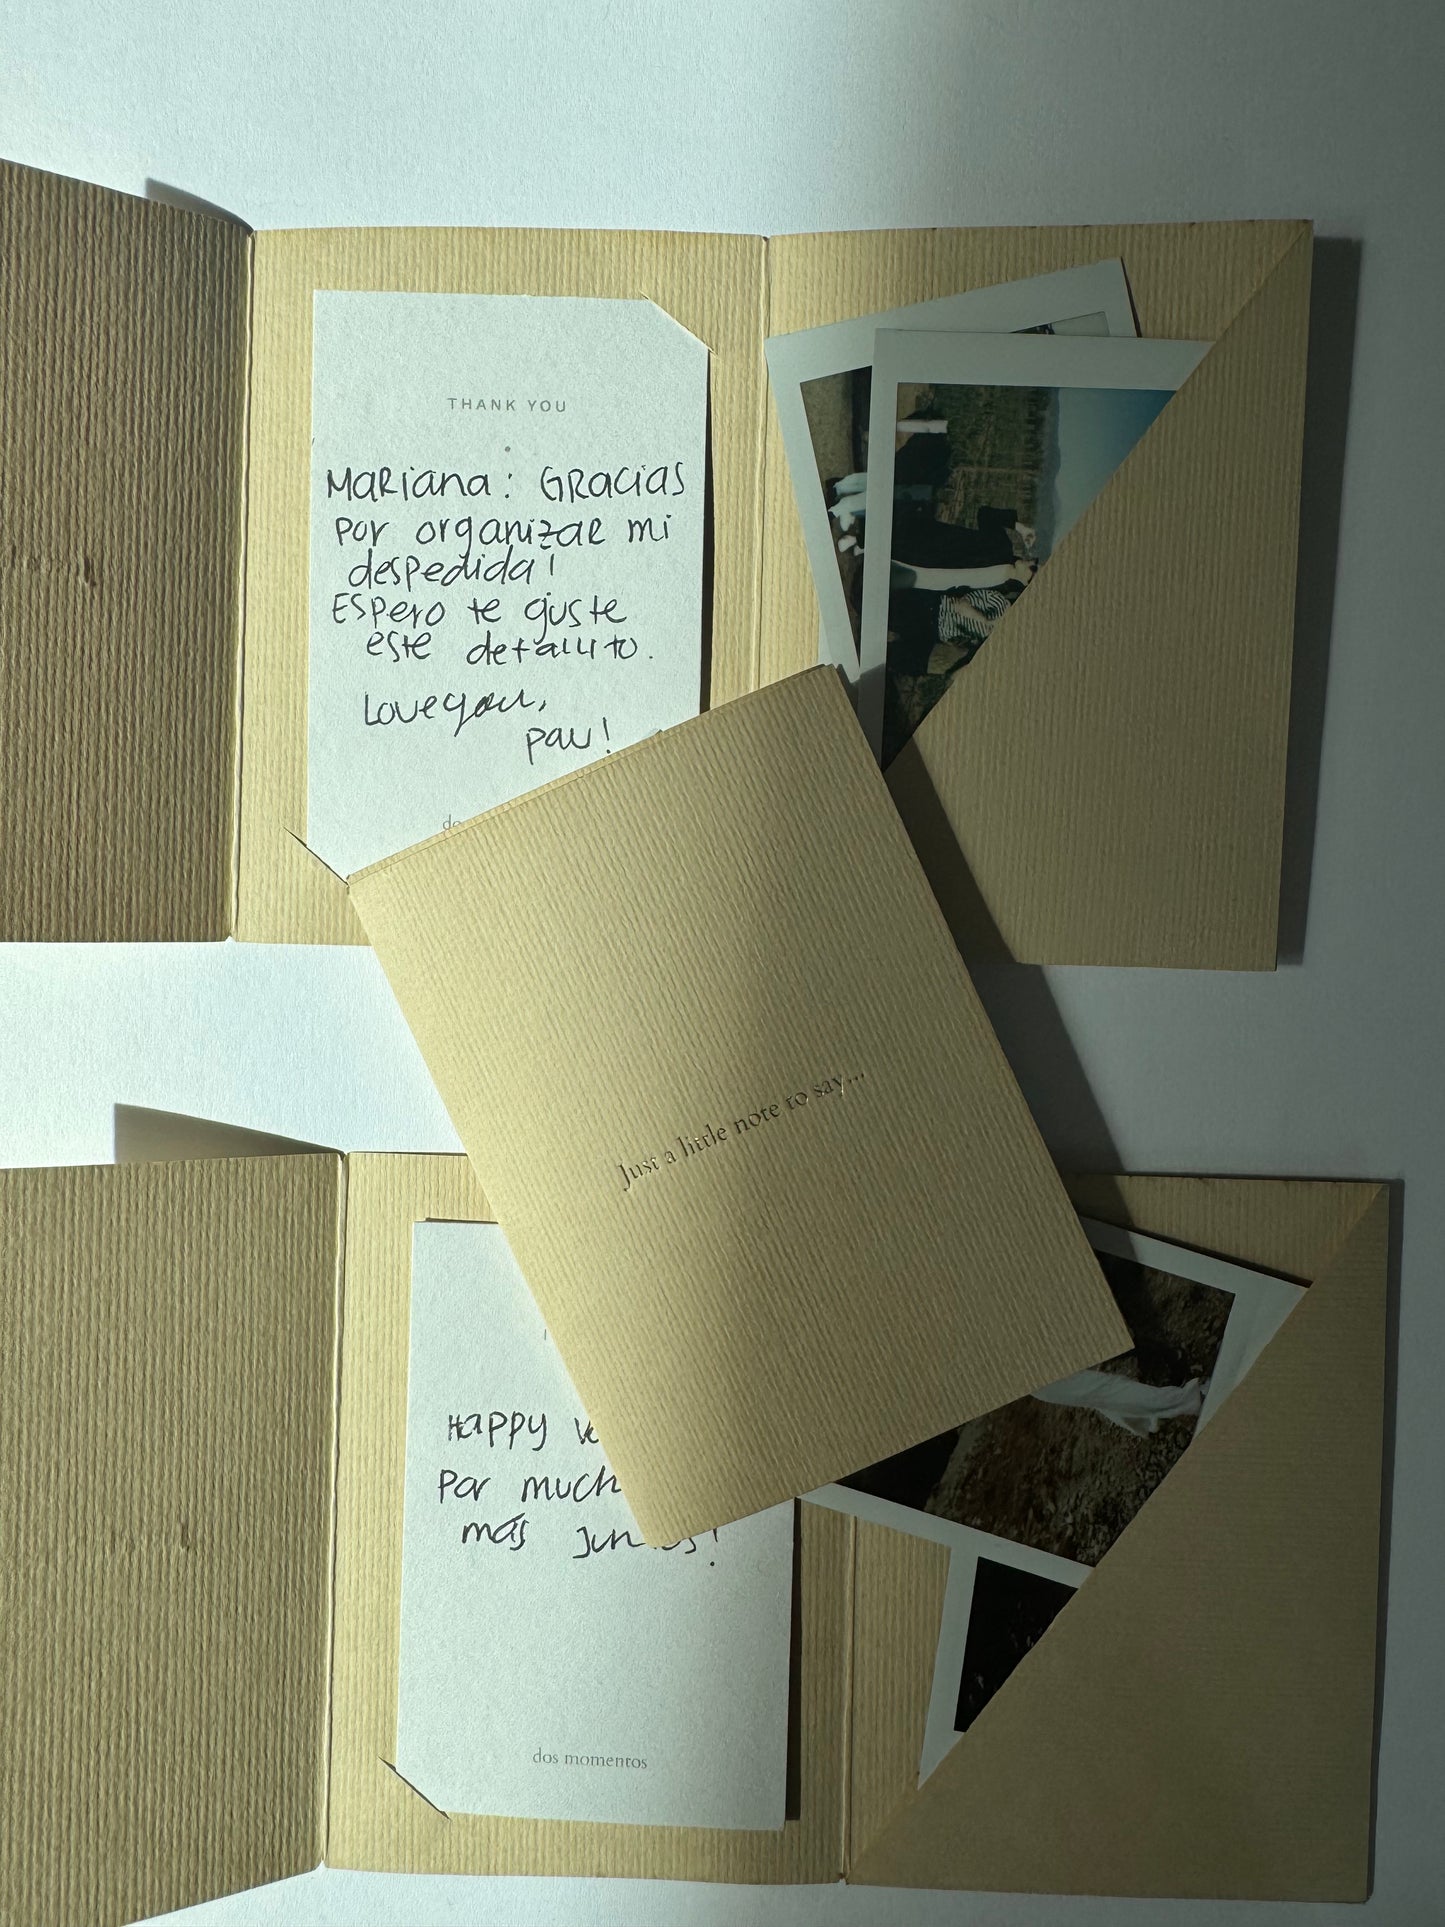 THANK YOU
Mariana: Gracias
por organizar mi
despedida!
Espero te guste
este detallito.
Love you,
pau!
Just a little note to say...
Happy
Por
más
dos momentos